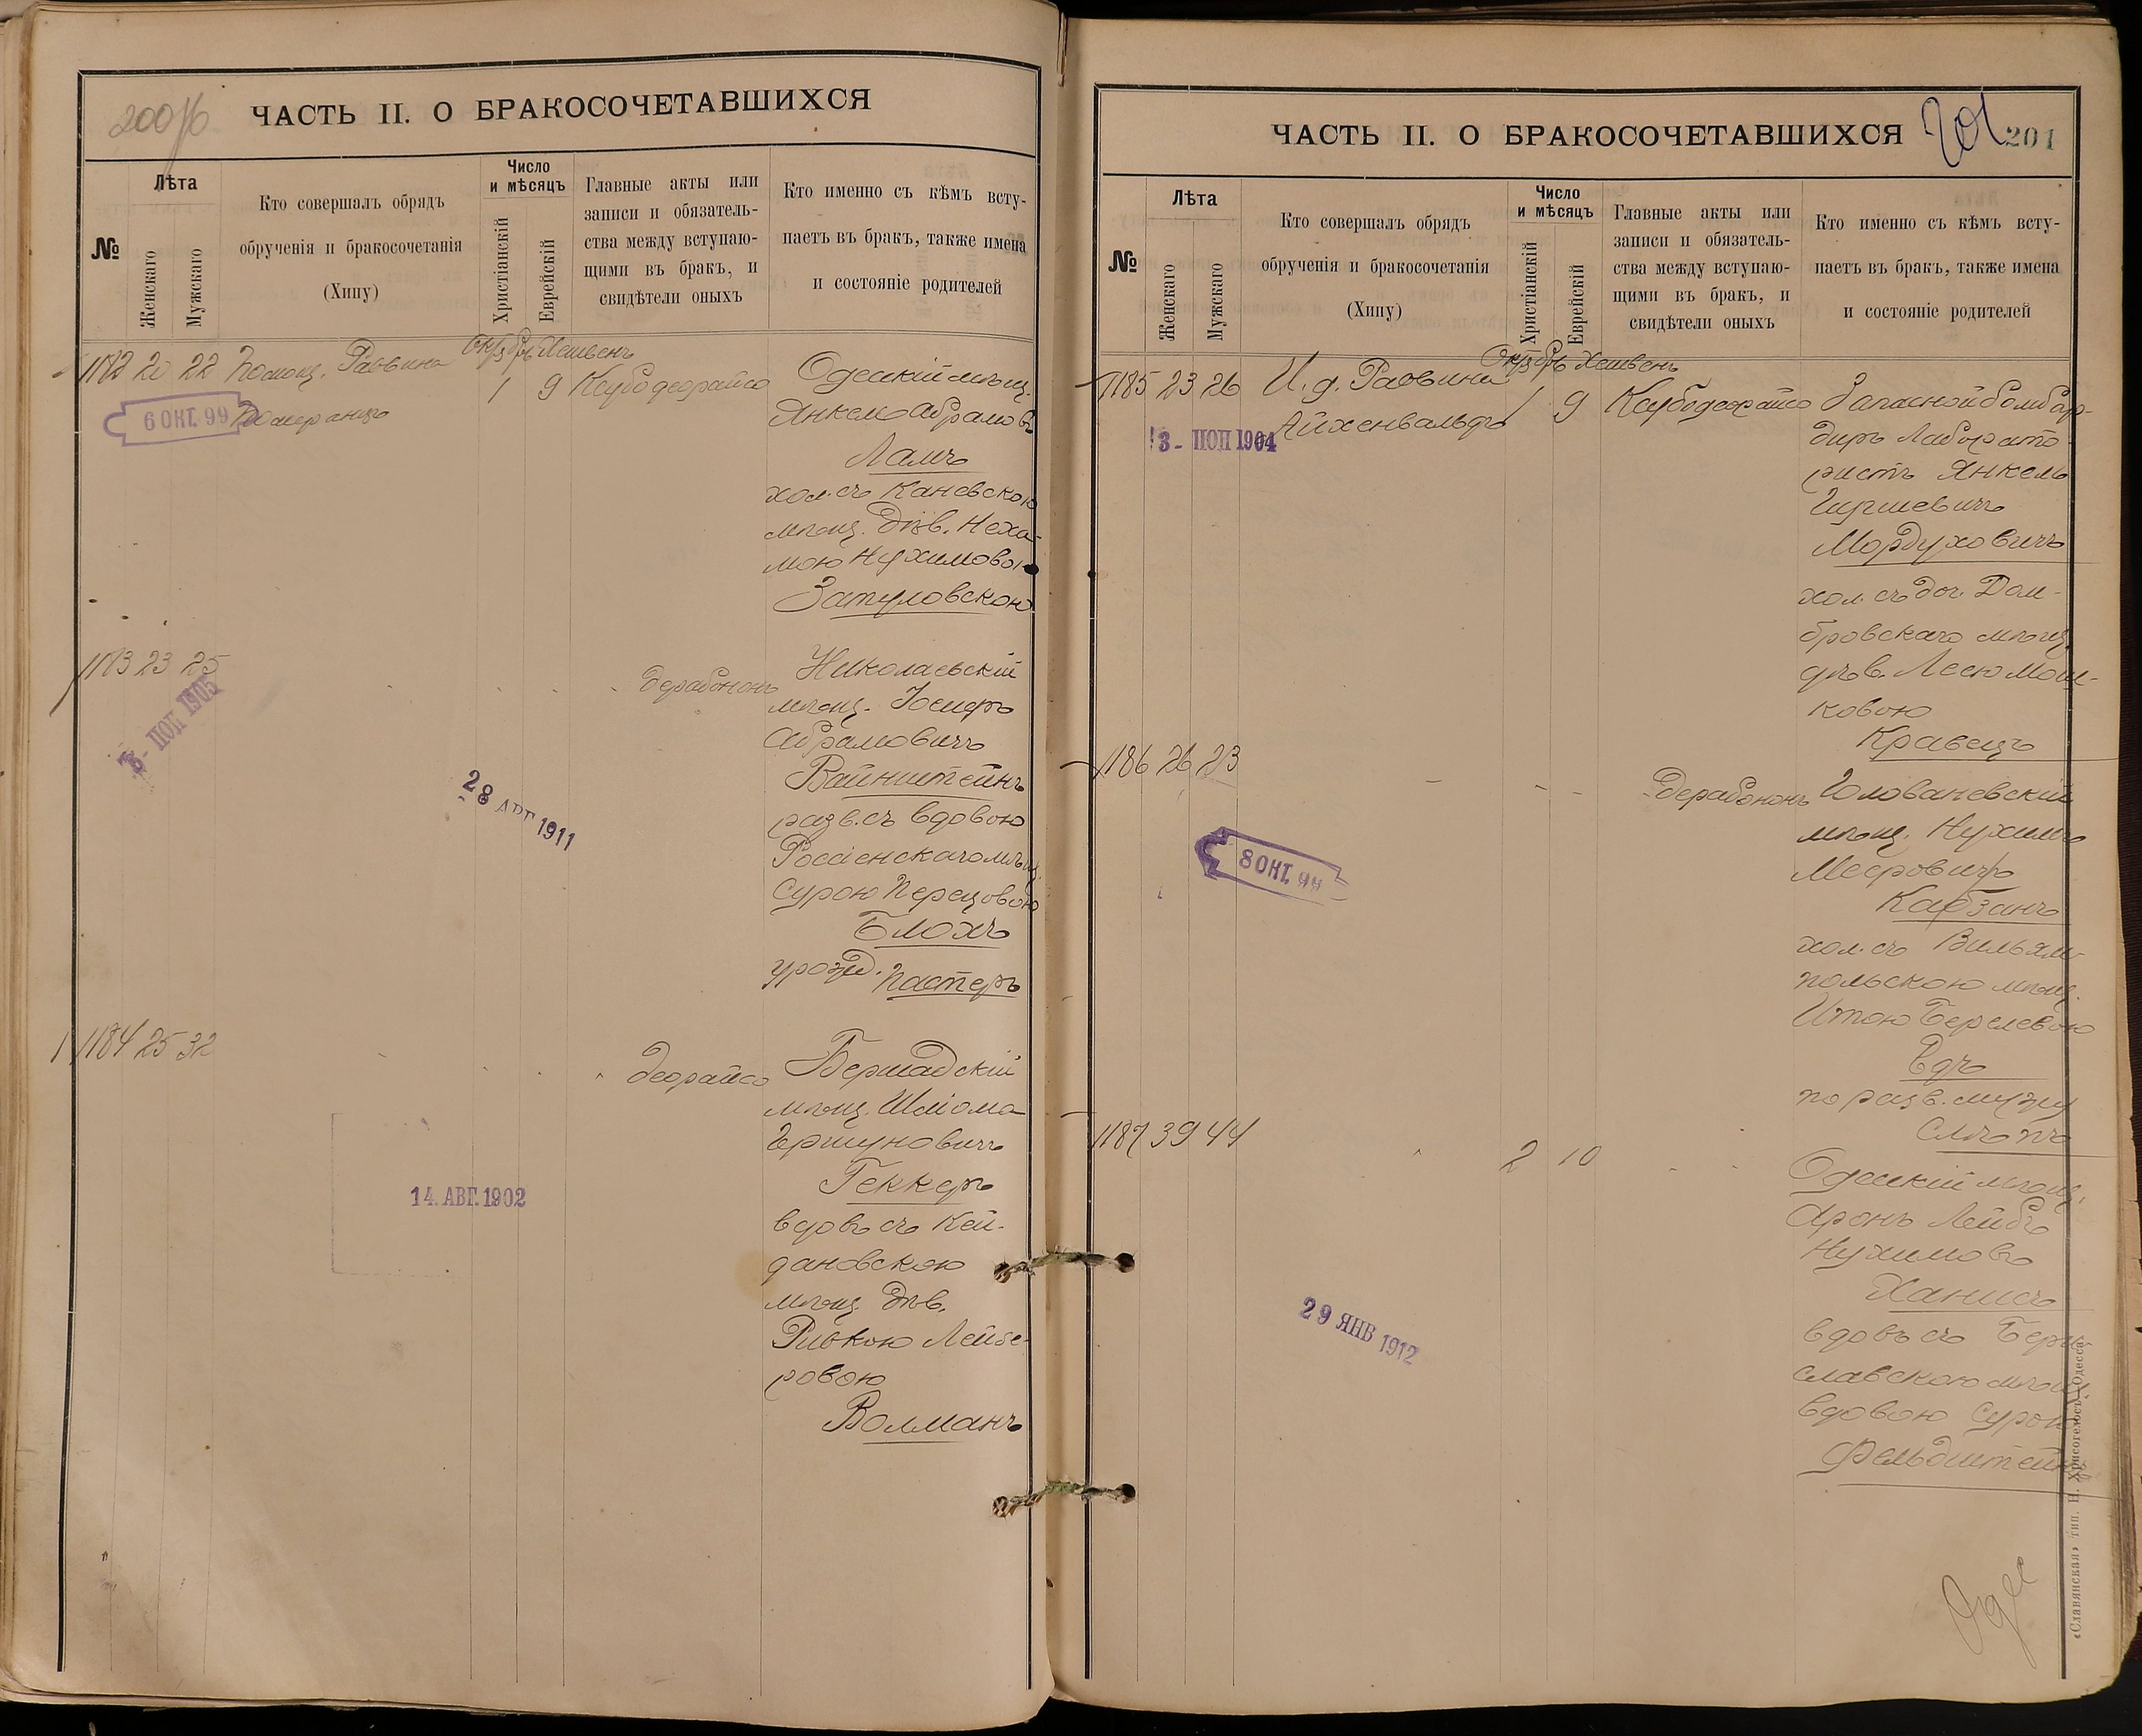 200 об
ЧАСТЬ II. О БРАКОСОЧЕТАВШИХСЯ
№
Лѣта
Женскаго
Мужскаго
Кто совершалъ обрядъ
обрученія и бракосочетанія
(Хипу)
Число
и мѣсяцъ
Христіанскій
Еврейскій
Главные акты или
записи и обязатель-
ства между вступаю-
щими въ бракъ, и
свидѣтели оныхъ
Кто именно съ кѣмъ всту-
паетъ въ бракъ, также имена
и состояніе родителей
Октябрь Хешвенъ
1182 20 22 Помощ. Раввина 1 9 Ксубо деорайсо Одесскій мѣщ.
6 ОКТ. 99 Померанцъ
Янкель Абрамовъ
Ламъ
хол. съ Каневскою
мѣщ. дѣв. Неха-
мою Нухимовою
Затуловскою
1183 23 25 дерабононъ Николаевскій
3 - ПОП 1905
мѣщ. Іосифъ
Абрамовичъ
Вайнштейнъ
28 АВГ 1911
разв. съ вдовою
Россіенскаго мѣщ.
Сурою Перецовою
Блохъ
урожд. Пастеръ
1184 25 32 деорайсо Бершадскій
мѣщ. Шліома
Гершуновичъ
Геккеръ
14. АВГ. 1902
вдовъ съ Кей-
дановскою
мѣщ. дѣв.
Ривкою Лейзе-
ровою
Волманъ
ЧАСТЬ II. О БРАКОСОЧЕТАВШИХСЯ
201 201
№
Лѣта
Женскаго
Мужскаго
Кто совершалъ обрядъ
обрученія и бракосочетанія
(Хипу)
Число
и мѣсяцъ
Христіанскій
Еврейскій
Главные акты или
записи и обязатель-
ства между вступаю-
щими въ бракъ, и
свидѣтели оныхъ
Кто именно съ кѣмъ всту-
паетъ въ бракъ, также имена
и состояніе родителей
Октябрь Хешвень
1185 23 26 И. д. Раввина 1 9 Ксубо деорайсо Запасной бомбар-
3 - ПОП 1904 Айхенвальдъ
диръ Лаборато
ристъ Янкель
Гиршевичъ
Мордуховичъ
хол. съ доч. Дом-
бровскаго мѣщ.
дѣв. Леею Мош-
ковою
Кравецъ
1186 26 23 дерабононъ Голованевскій
мѣщ. Нухимъ
Мееровичъ
8 ОКТ. 99
Кабзанъ
хол. съ Вильям-
польскою мѣщ.
Итою Берелевою
Эдъ
по разв. мужу
Слѣпъ
1187 39 44 2 10
Одесскій мѣщ.
Аронъ Лейбъ
Нухимовъ
Ханисъ
29 ЯНВ 1912
вдовъ съ Бери-
славскою мѣщ.
вдовою Сурою
Фельдштейнъ
«Славянская» тип. Н. Хрисогелосъ, Одесса.